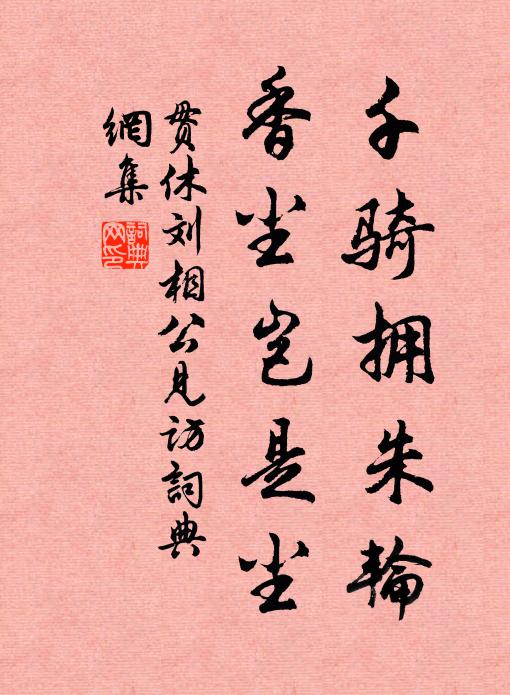 千骑拥朱輪
香尘岂是尘
贯休刘相公见访詞典
網集
詞典
网印